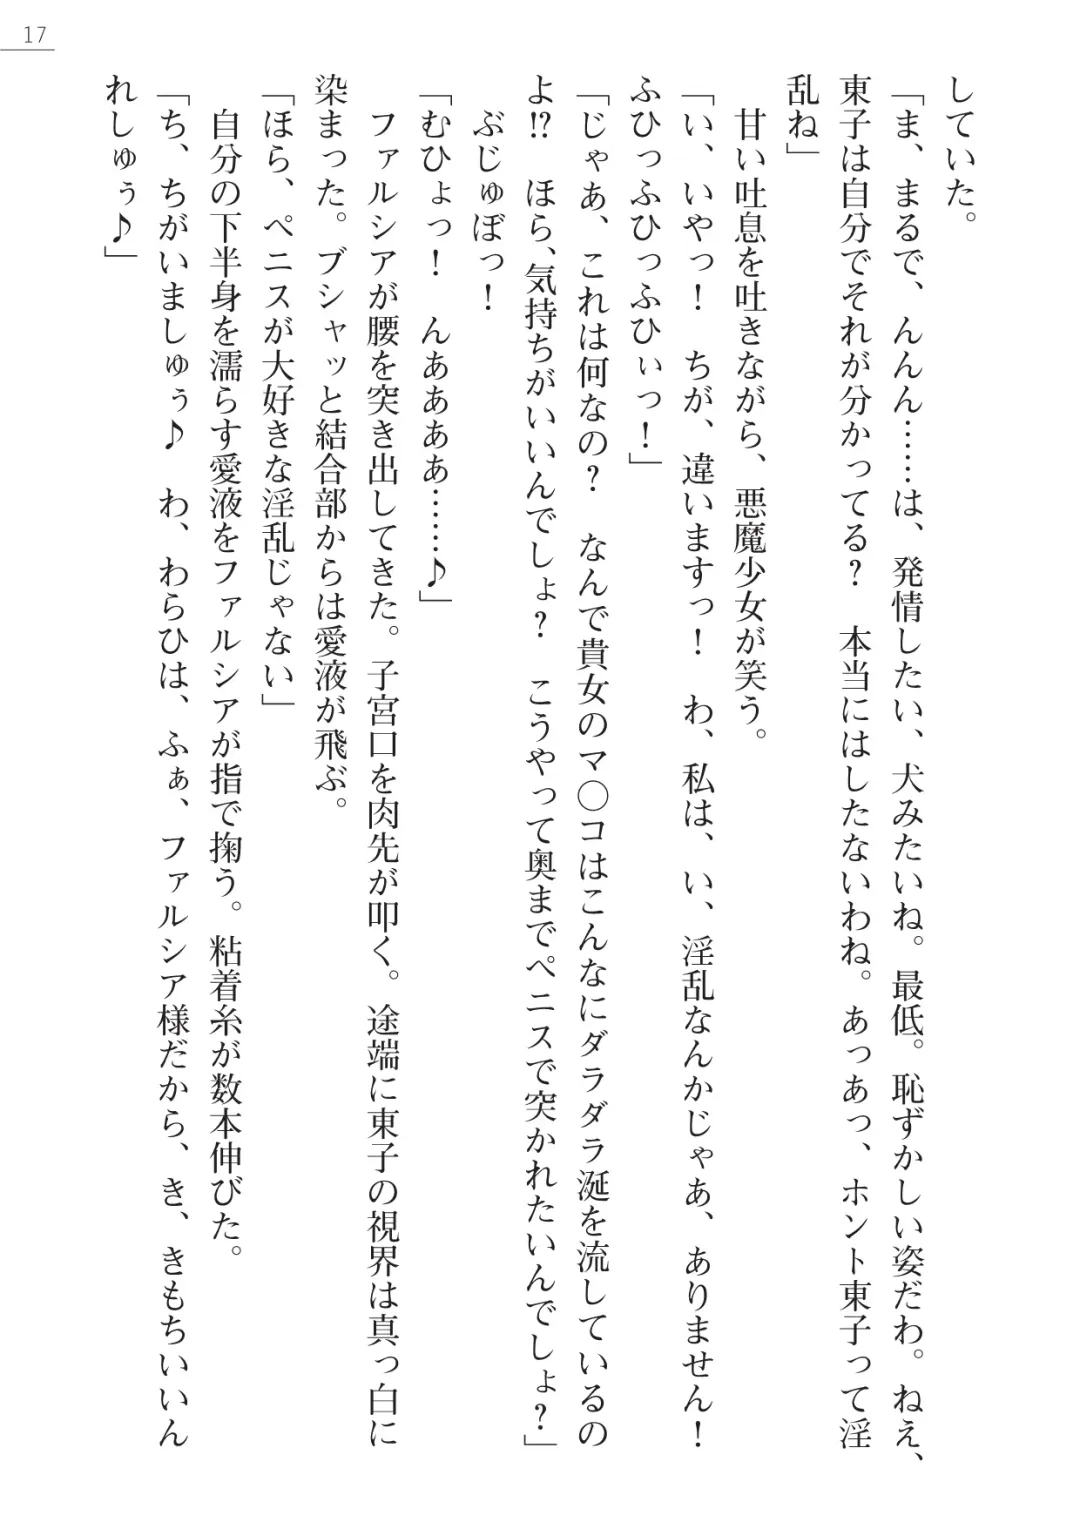 17
していた。
「ま、まるで、んんん……は、発情したい、犬みたいね。最低。恥ずかしい姿だわ。ねえ、
東子は自分でそれが分かってる？　本当にはしたないわね。あっあっ、ホント東子って淫
乱ね」
　甘い吐息を吐きながら、悪魔少女が笑う。
「い、いやっ！　ちが、違いますっ！　わ、私は、い、淫乱なんかじゃあ、ありません！
ふひっふひっふひぃっ！」
「じゃあ、これは何なの？　なんで貴女のマ◯コはこんなにダラダラ涎を流しているの
よ!?　ほら、気持ちがいいんでしょ？　こうやって奥までペニスで突かれたいんでしょ？」
　ぶじゅぼっ！
「むひょっ！　んああああ……♪」
　ファルシアが腰を突き出してきた。子宮口を肉先が叩く。途端に東子の視界は真っ白に
染まった。ブシャッと結合部からは愛液が飛ぶ。
「ほら、ペニスが大好きな淫乱じゃない」
　自分の下半身を濡らす愛液をファルシアが指で掬う。粘着糸が数本伸びた。
「ち、ちがいましゅぅ♪　わ、わらひは、ふぁ、ファルシア様だから、き、きもちいいん
れしゅぅ♪」